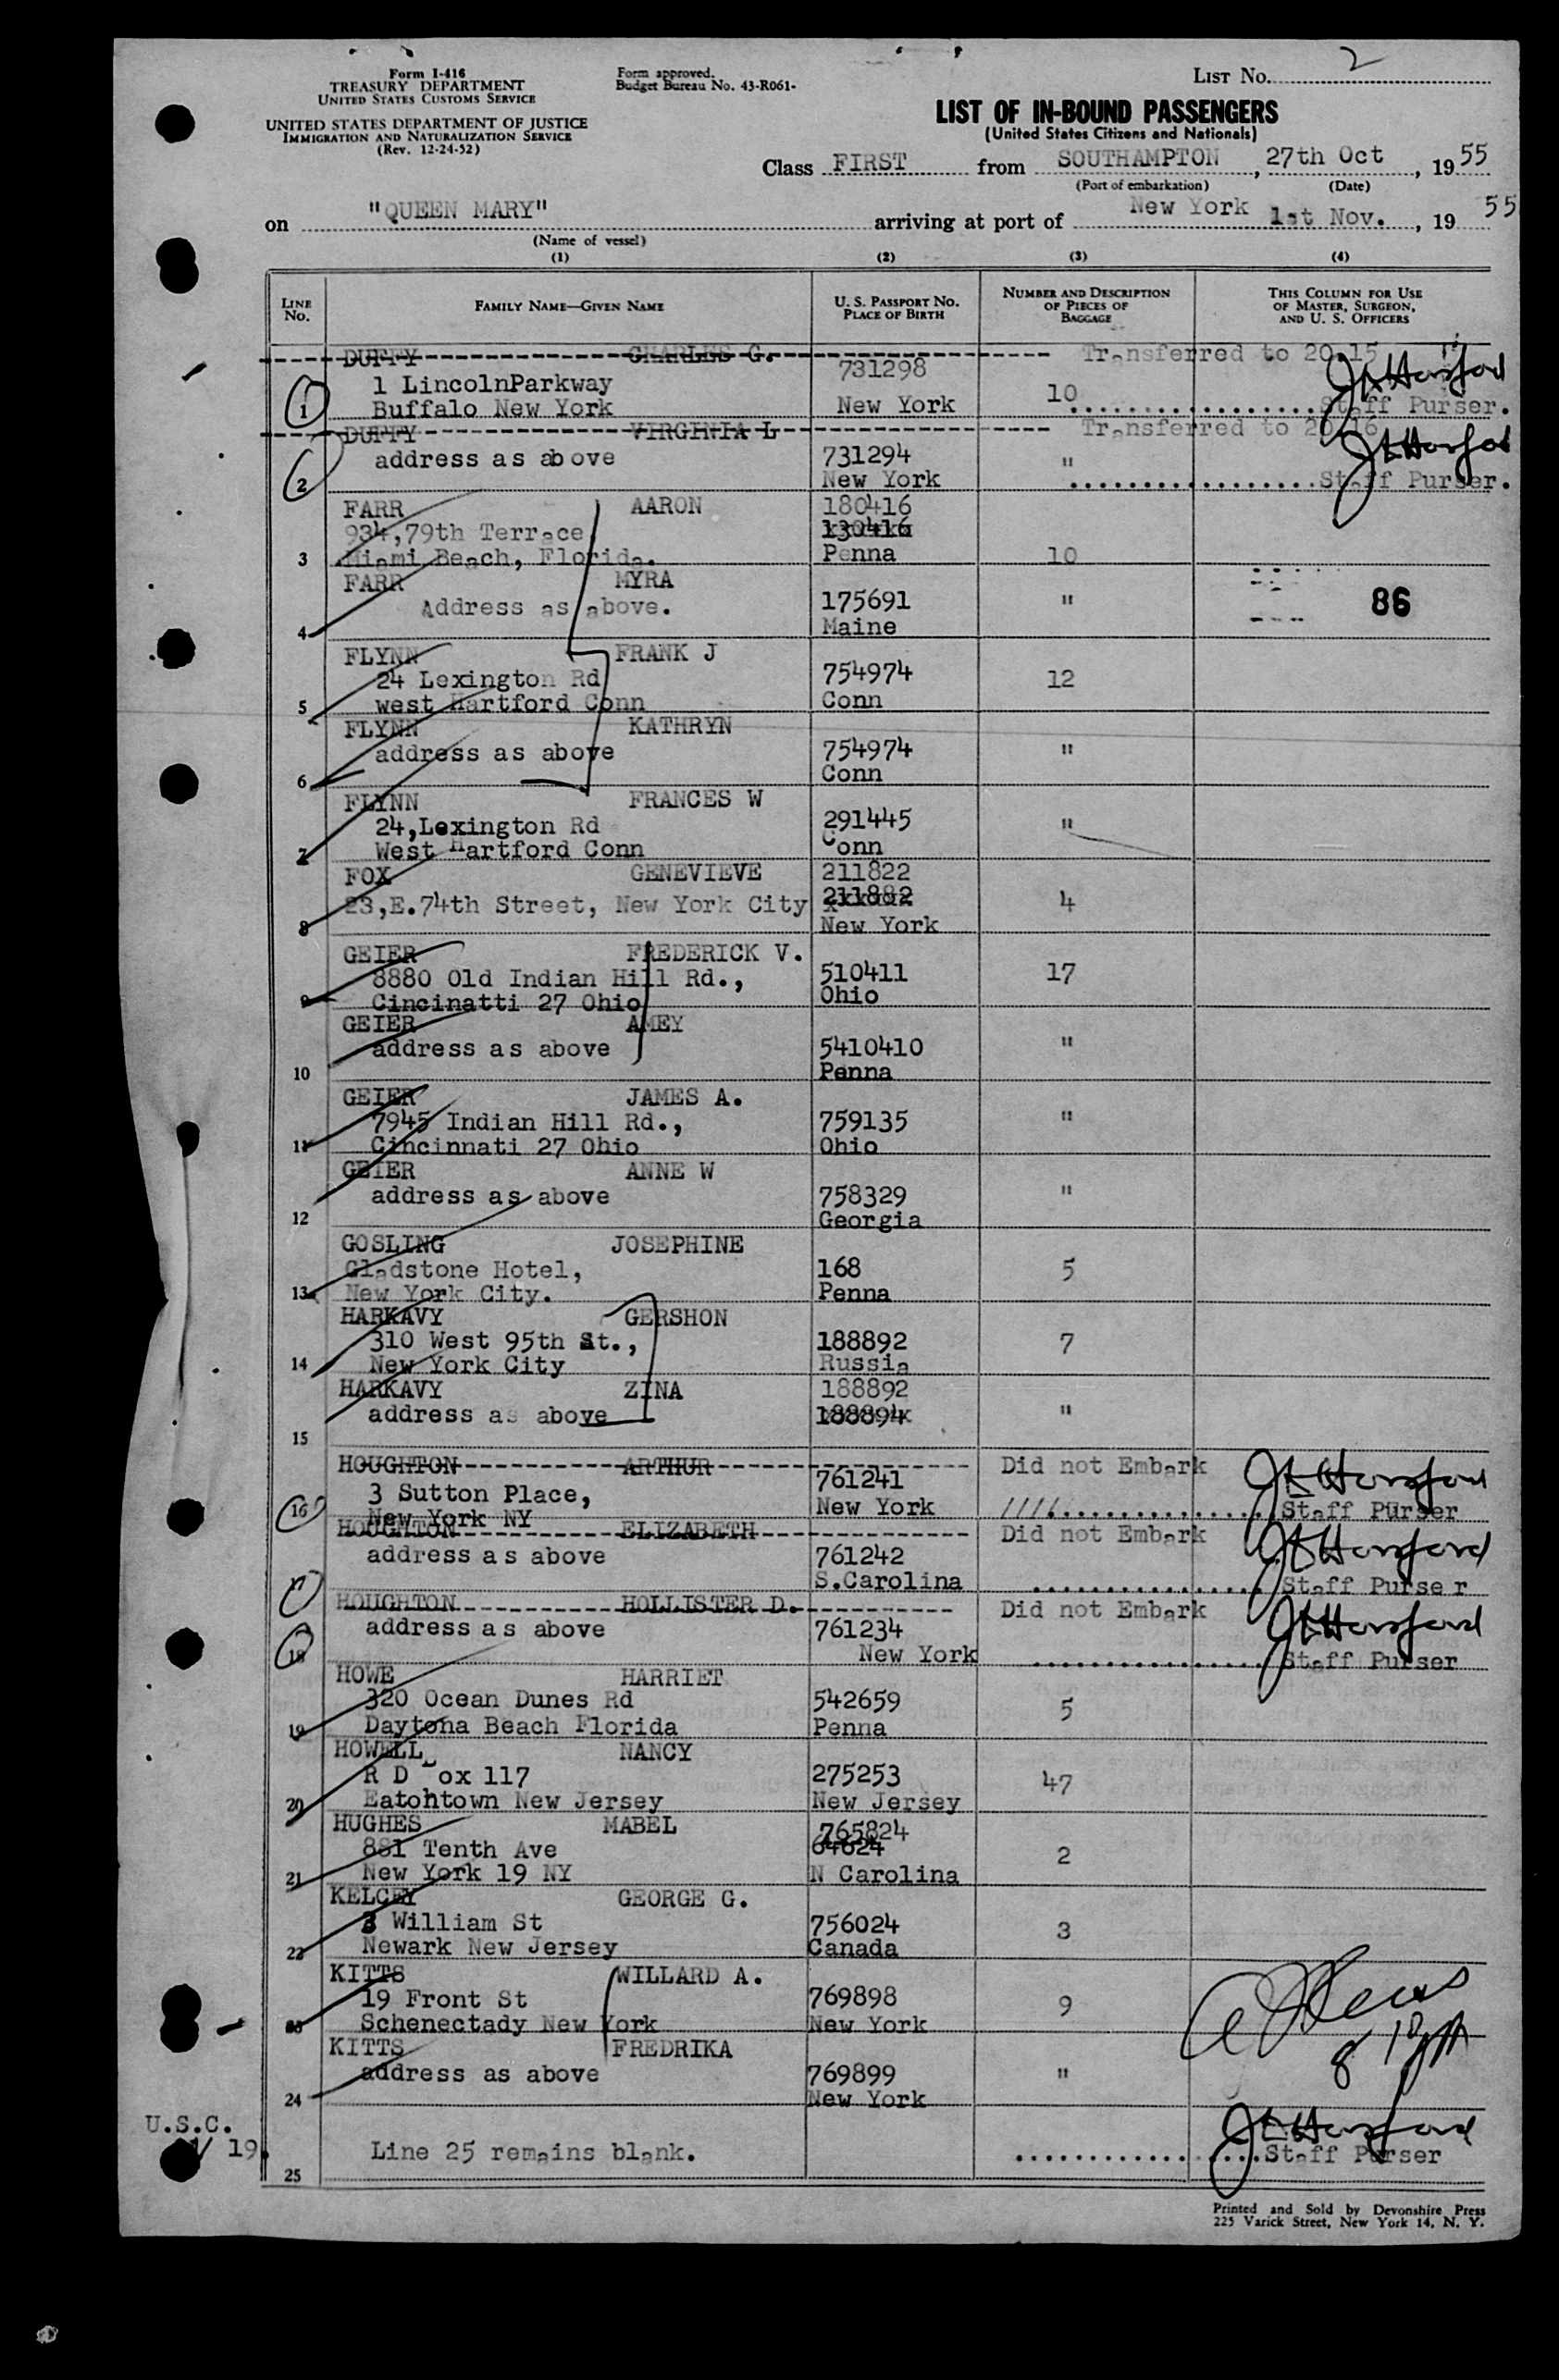 Form I-416
TREASURY DEPARTMENT
UNITED STATES CUSTOMS SERVICE
UNITED STATES DEPARTMENT OF JUSTICE
IMMIGRATION AND NATURALIZATION SERVICE
(Rev. 12-24-52)
Form approved.
Budget Bureau No. 43-R061-
LIST No. 2
LIST OF IN-BOUND PASSENGERS
(United States Citizens and Nationals)
Class FIRST from SOUTHAMPTON, 27th Oct, 1955
(Port of embarkation) (Date)
on "QUEEN MARY" arriving at port of New York 1st Nov., 1955
(Name of vessel)
(1) (2) (3) (4)
LINE No. FAMILY NAME—GIVEN NAME U. S. PASSPORT NO. PLACE OF BIRTH NUMBER AND DESCRIPTION OF PIECES OF BAGGAGE THIS COLUMN FOR USE OF MASTER, SURGEON, AND U. S. OFFICERS
DUFFY CHARLES G. Transferred to 20-15
1 LincolnParkway 731298
1 Buffalo New York New York 10 Staff Purser.
DUFFY VIRGINIA L Transferred to 20-16
address as above 731294 "
2 New York Staff Purser.
FARR AARON 180416
934,79th Terrace 130416
3 Miami Beach, Florida. Penna 10
FARR MYRA
Address as above. 175691 " 86
4 Maine
FLYNN FRANK J
24 Lexington Rd 754974 12
5 west Hartford Conn Conn
FLYNN KATHRYN
address as above 754974 "
6 Conn
FLYNN FRANCES W
24,Lexington Rd 291445 "
7 West Hartford Conn Conn
FOX GENEVIEVE 211822
23,E.74th Street, New York City 211882 4
8 New York
GEIER FREDERICK V.
8880 Old Indian Hill Rd., 510411 17
9 Cincinatti 27 Ohio Ohio
GEIER AMEY
address as above 5410410 "
10 Penna
GEIER JAMES A.
7945 Indian Hill Rd., 759135 "
11 Cincinnati 27 Ohio Ohio
GEIER ANNE W
address as above 758329 "
12 Georgia
GOSLING JOSEPHINE
Gladstone Hotel, 168 5
13 New York City. Penna
HARKAVY GERSHON
310 West 95th St., 188892 7
14 New York City Russia
HARKAVY ZINA 188892
address as above 188894 "
15
HOUGHTON ARTHUR Did not Embark
3 Sutton Place, 761241
16 New York NY New York Staff Purser
HOUGHTON ELIZABETH Did not Embark
address as above 761242
S.Carolina Staff Purse r
HOUGHTON HOLLISTER D. Did not Embark
address as above 761234
18 New York Staff Purser
HOWE HARRIET
320 Ocean Dunes Rd 542659 5
19 Daytona Beach Florida Penna
HOWELL NANCY
R D Box 117 275253 47
20 Eatohtown New Jersey New Jersey
HUGHES MABEL 765824
881 Tenth Ave 64624 2
21 New York 19 NY N Carolina
KELCEY GEORGE G.
William St 756024 3
22 Newark New Jersey Canada
KITTS WILLARD A.
19 Front St 769898 9
Schenectady New York New York
KITTS FREDRIKA
address as above 769899 "
24 New York
U.S.C.
19. Line 25 remains blank. Staff Purser
25
Printed and Sold by Devonshire Press
225 Varick Street, New York 14, N. Y.